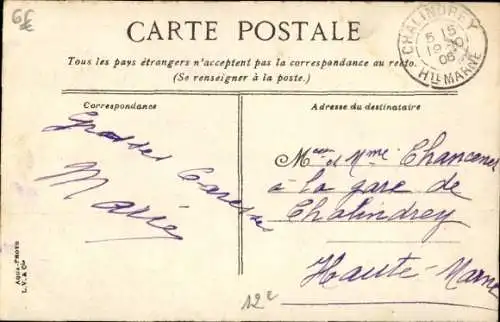 6€
CARTE POSTALE
Tous les pays étrangers n'acceptent pas la correspondance au recto.
(Se renseigner à la poste.)
CHALINDREY
5 15
19
06
HTE MARNE
Correspondance
Grosses Caresses
Marie
Adresse du destinataire
et Mme Chancenet
à la gare de
Chalindrey
Haute-Marne
AQUA-PHOTO
L.V. & Cie
12€